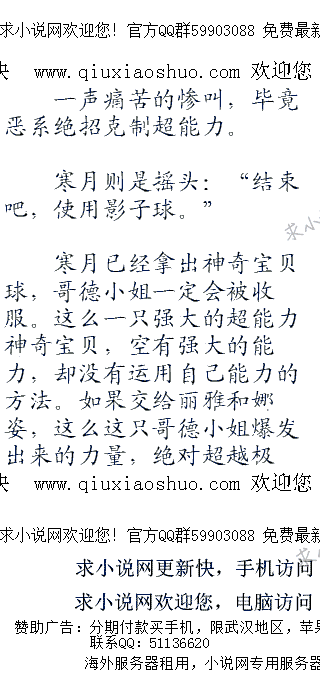 求小说网欢迎您！官方QQ群59903088 免费最新
www.qiuxiaoshuo.com 欢迎您
一声痛苦的惨叫，毕竟
恶系绝招克制超能力。
寒月则是摇头：“结束
吧，使用影子球。”
求小
寒月已经拿出神奇宝贝
球，哥德小姐一定会被收
服。这么一只强大的超能力
神奇宝贝，空有强大的能
力，却没有运用自己能力的
方法。如果交给丽雅和娜
姿，这么这只哥德小姐爆发
出来的力量，绝对超越极
www.qiuxiaoshuo.com 欢迎您
求小说网欢迎您！官方QQ群59903088 免费最新
求小说网更新快，手机访问
求小说网欢迎您，电脑访问
赞助广告：分期付款买手机，限武汉地区，苹果
联系QQ：51136620
海外服务器租用，小说网专用服务器